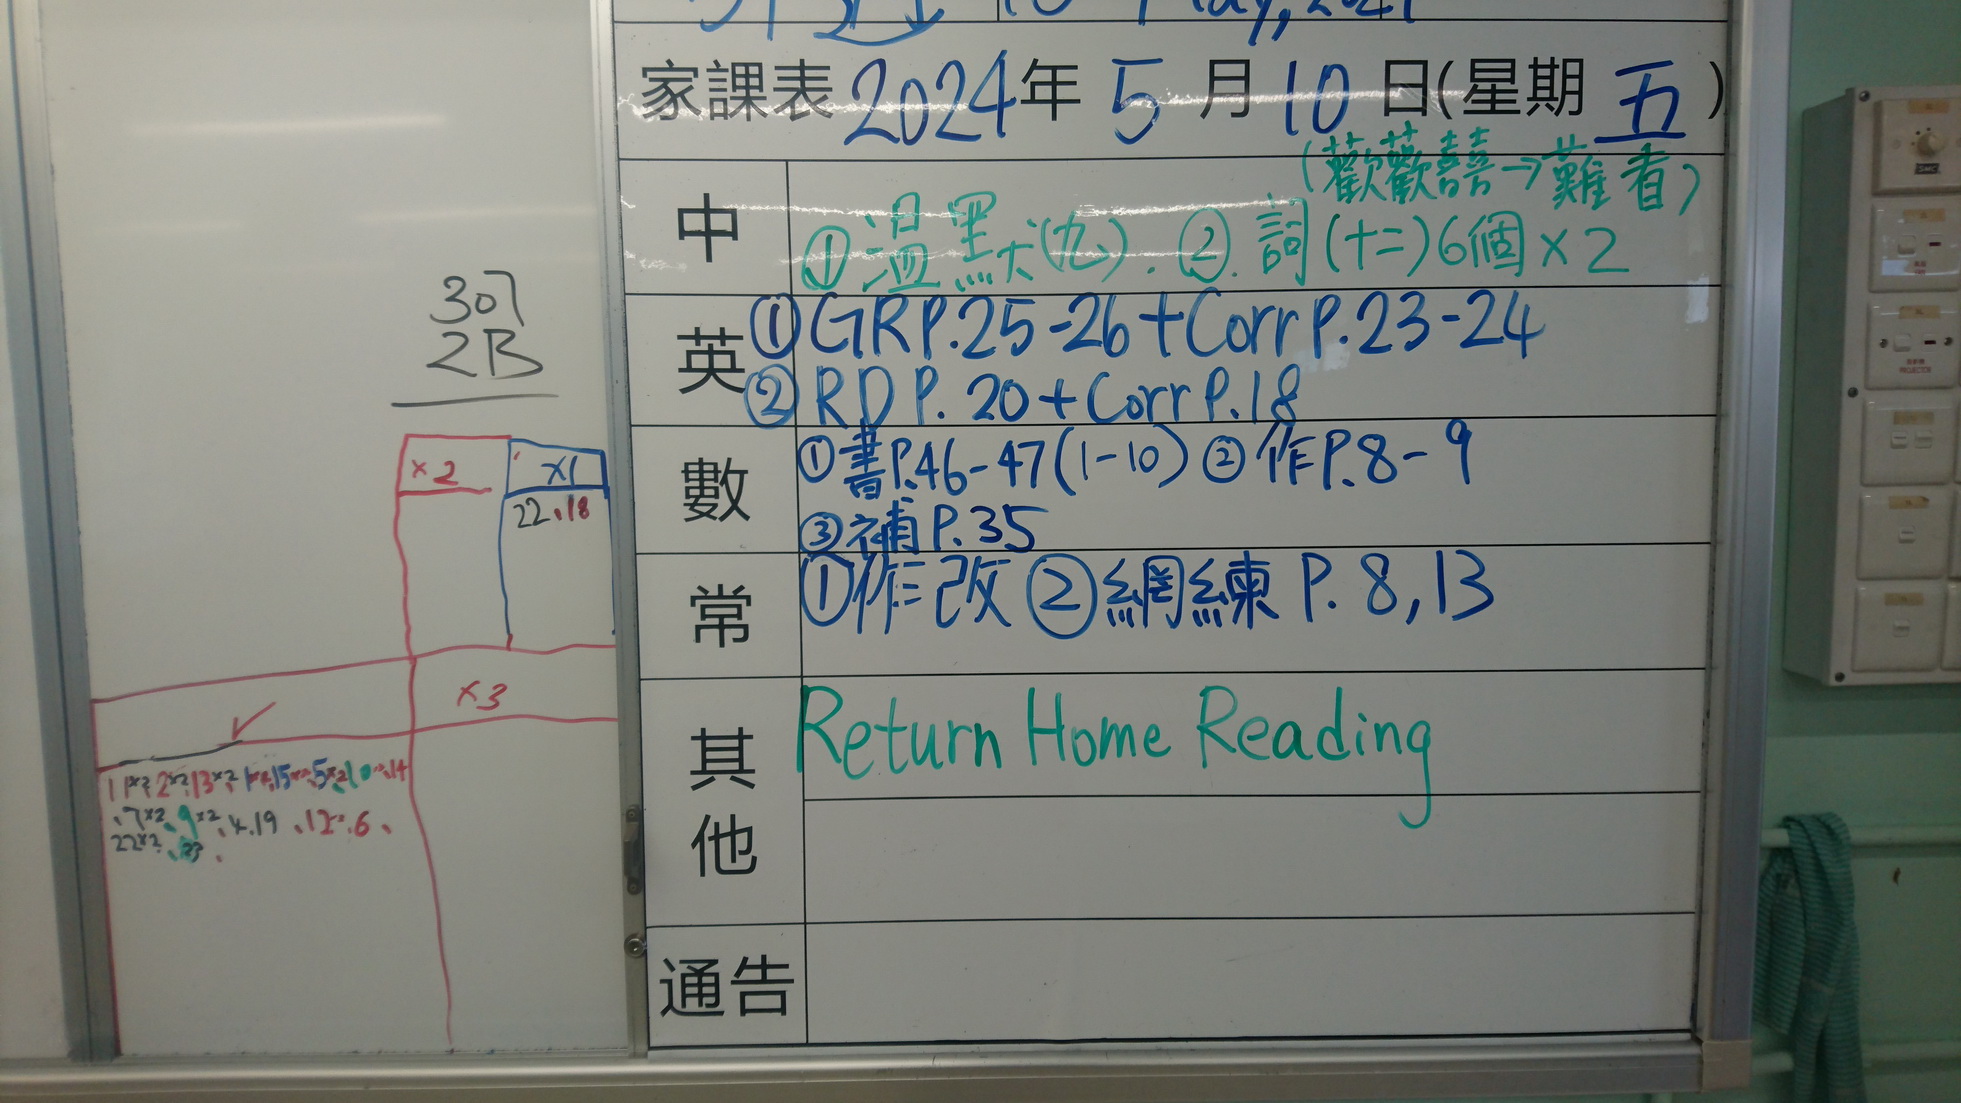 10 May, 2024
家課表 2024年 5 月 10 日(星期 五 )
(歡歡喜喜→難看)
中 ①溫默(九). ②. 詞(十二)6個×2
英 ①GRP.25-26+Corr P.23-24
②RD P. 20+Corr P.18
數 ①書P.46-47(1-10) ②作P.8-9
③補P.35
常 ①作改 ②網練 P. 8,13
其他 Return Home Reading
通告
307
2B
×2 ×1
22、18
×3
、7×2、9×2、4.19、12、6、
22×2、23、